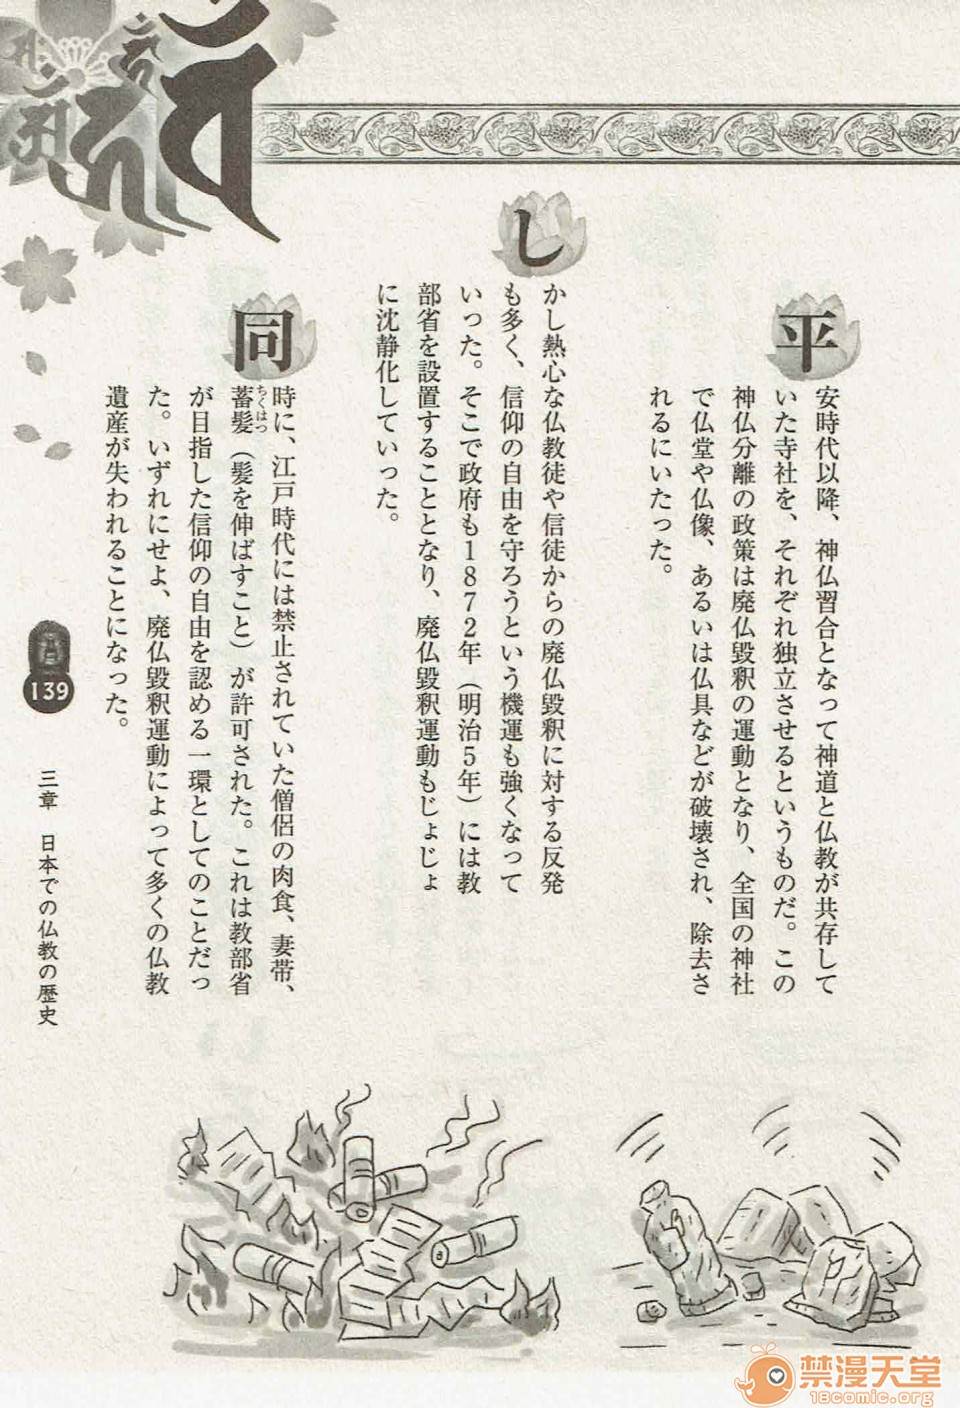 平安時代以降、神仏習合となって神道と仏教が共存して
いた寺社を、それぞれ独立させるというものだ。この
神仏分離の政策は廃仏毀釈の運動となり、全国の神社
で仏堂や仏像、あるいは仏具などが破壊され、除去さ
れるにいたった。
しかし熱心な仏教徒や信徒からの廃仏毀釈に対する反発
も多く、信仰の自由を守ろうという機運も強くなって
いった。そこで政府も1872年（明治5年）には教
部省を設置することとなり、廃仏毀釈運動もじょじょ
に沈静化していった。
同時に、江戸時代には禁止されていた僧侶の肉食、妻帯、
蓄髪（髪を伸ばすこと）が許可された。これは教部省
ちくはつ
が目指した信仰の自由を認める一環としてのことだっ
た。いずれにせよ、廃仏毀釈運動によって多くの仏教
遺産が失われることになった。
139
三章 日本での仏教の歴史
禁漫天堂
18comic.org